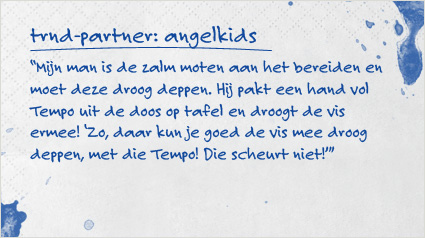 trnd-partner: angelkids
"Mijn man is de zalm moten aan het bereiden en
moet deze droog deppen. Hij pakt een hand vol
Tempo uit de doos op tafel en droogt de vis
ermee! 'Zo, daar kun je goed de vis mee droog
deppen, met die Tempo! Die scheurt niet!'"